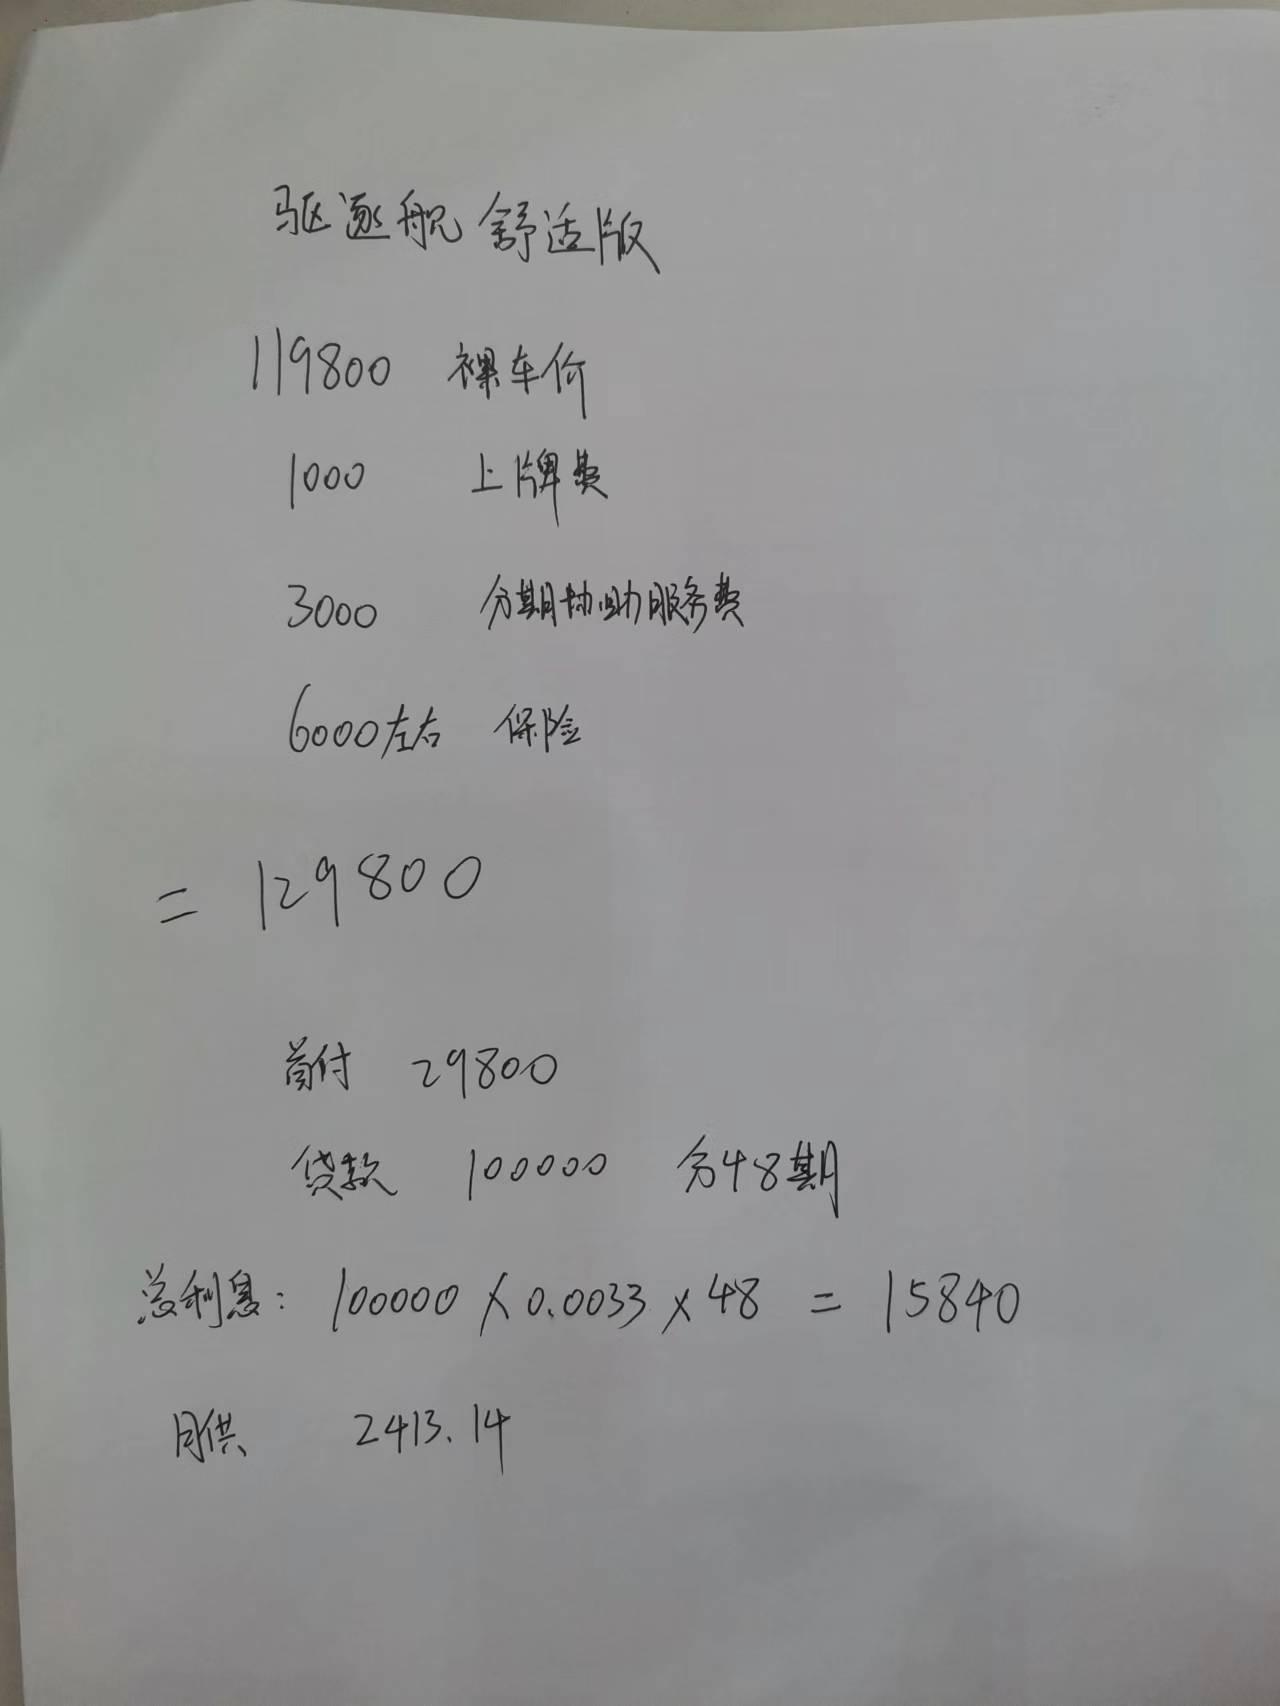 驱逐舰 舒适版
119800 裸车价
1000 上牌费
3000 分期协助服务费
6000左右 保险
= 129800
首付 29800
贷款 100000 分48期
总利息: 100000 × 0.0033 × 48 = 15840
月供 2413.14